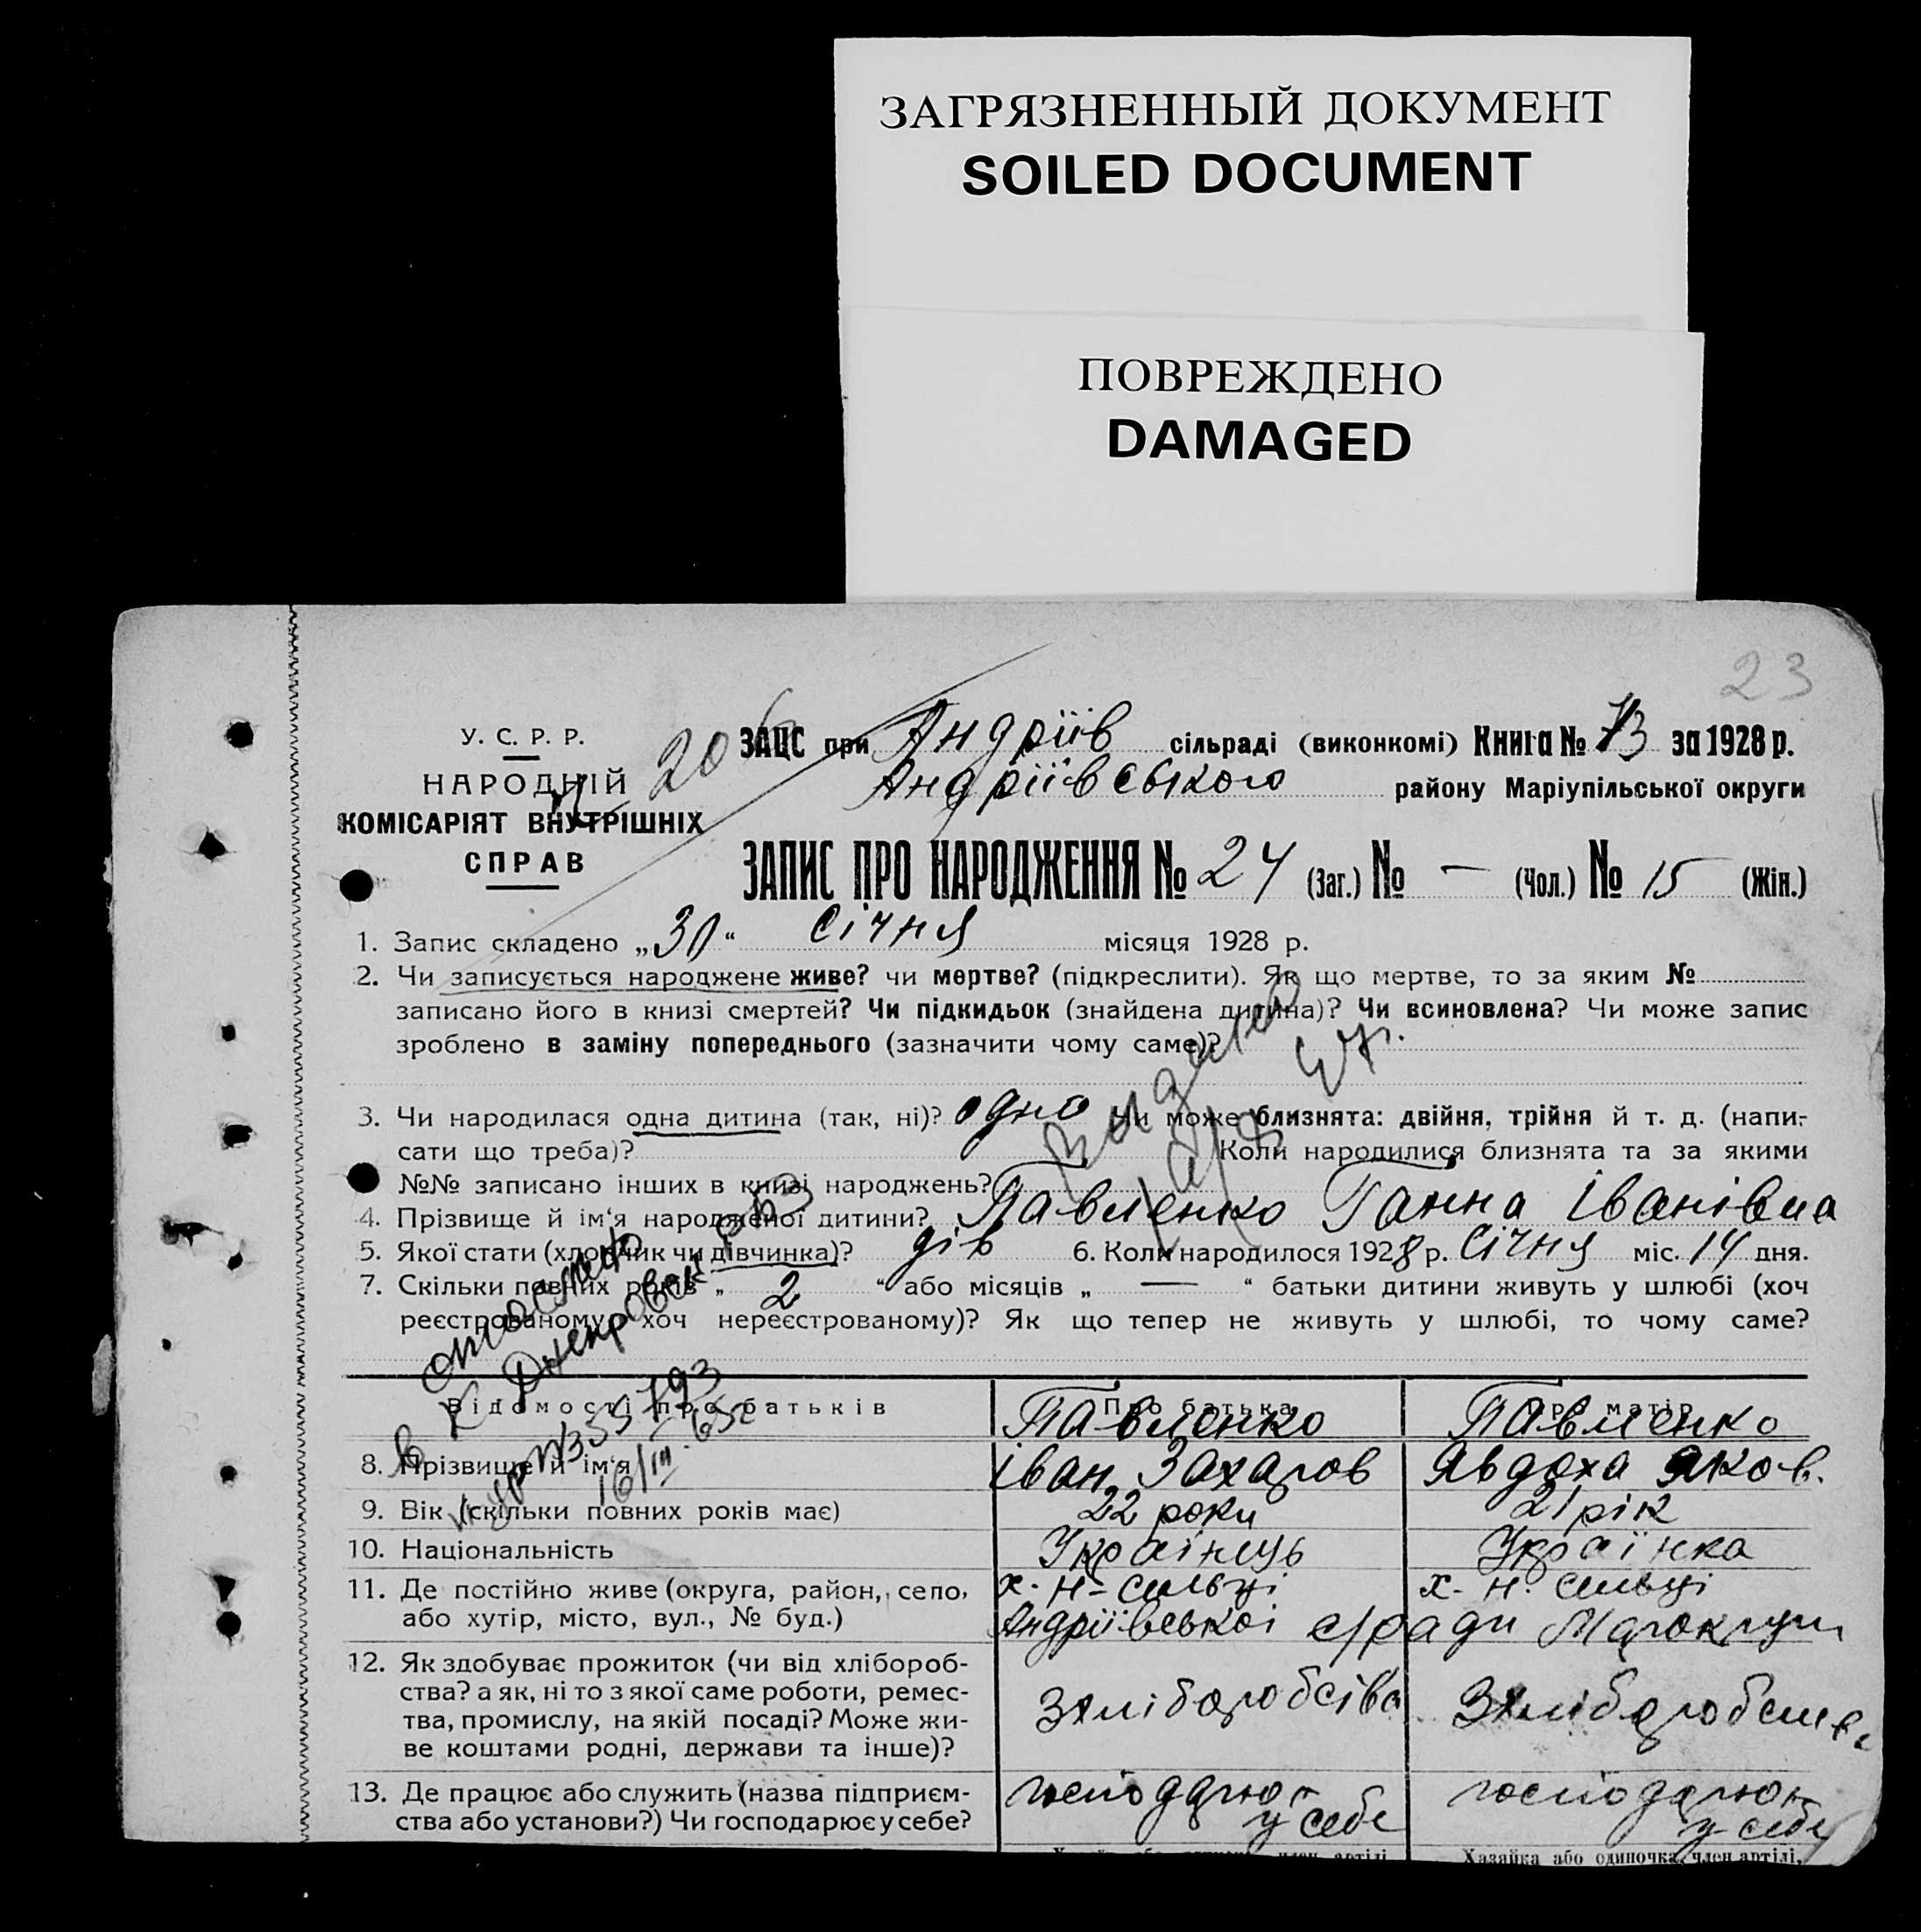 ЗАГРЯЗНЕННЫЙ ДОКУМЕНТ
SOILED DOCUMENT
ПОВРЕЖДЕНО
DAMAGED
23
У. С. Р. Р.
НАРОДНІЙ
КОМІСАРІЯТ ВНУТРІШНІХ
СПРАВ
206
ЗАЦС при Андріїв сільраді (виконкомі) Книга № 73 за 1928 р.
Андріївського району Маріупільської округи
ЗАПИС ПРО НАРОДЖЕННЯ № 24 (Заг.) № — (Чол.) № 15 (Жін.)
1. Запис складено „30“ Січня місяця 1928 р.
2. Чи записується народжене живе? чи мертве? (підкреслити). Як що мертве, то за яким №
записано його в книзі смертей? Чи підкидьок (знайдена дитина)? Чи всиновлена? Чи може запис
зроблено в заміну попереднього (зазначити чому саме)?
3. Чи народилася одна дитина (так, ні)? одна Чи може близнята: двійня, трійня й т. д. (напи-
сати що треба)? Коли народилися близнята та за якими
№№ записано інших в книзі народжень?
4. Прізвище й ім‘я народженої дитини? Павленко Ганна Іванівна
5. Якої стати (хлопчик чи дівчинка)? дів 6. Коли народилось 1928 р. Січня міс. 14 дня.
7. Скільки повних років „ 2 “ або місяців „ — “ батьки дитини живуть у шлюбі (хоч
реєстрованому хоч нереєстрованому)? Як що тепер не живуть у шлюбі, то чому саме?
Відомості про батьків Про батька Про матір
Павленко Павленко
8. Прізвище й ім‘я Іван Захаров Явдоха Яков.
9. Вік (скільки повних років має) 22 роки 21 рік
10. Національність Українець Українка
11. Де постійно живе (округа, район, село, х. Н-Сельці х. Н. Сельці
або хутір, місто, вул., № буд.) Андріївської с/ради
12. Як здобуває прожиток (чи від хлібороб-
ства? а як, ні то з якої саме роботи, ремес-
тва, промислу, на якій посаді? Може жи-
ве коштами родні, держави та інше)?
Зхліборобства Зхліборобства
13. Де працює або служить (назва підприєм- господарюют господарюют
ства або установи?) Чи господарює у себе? у себе у себе
Хазяйка або одиночка, член артілі,